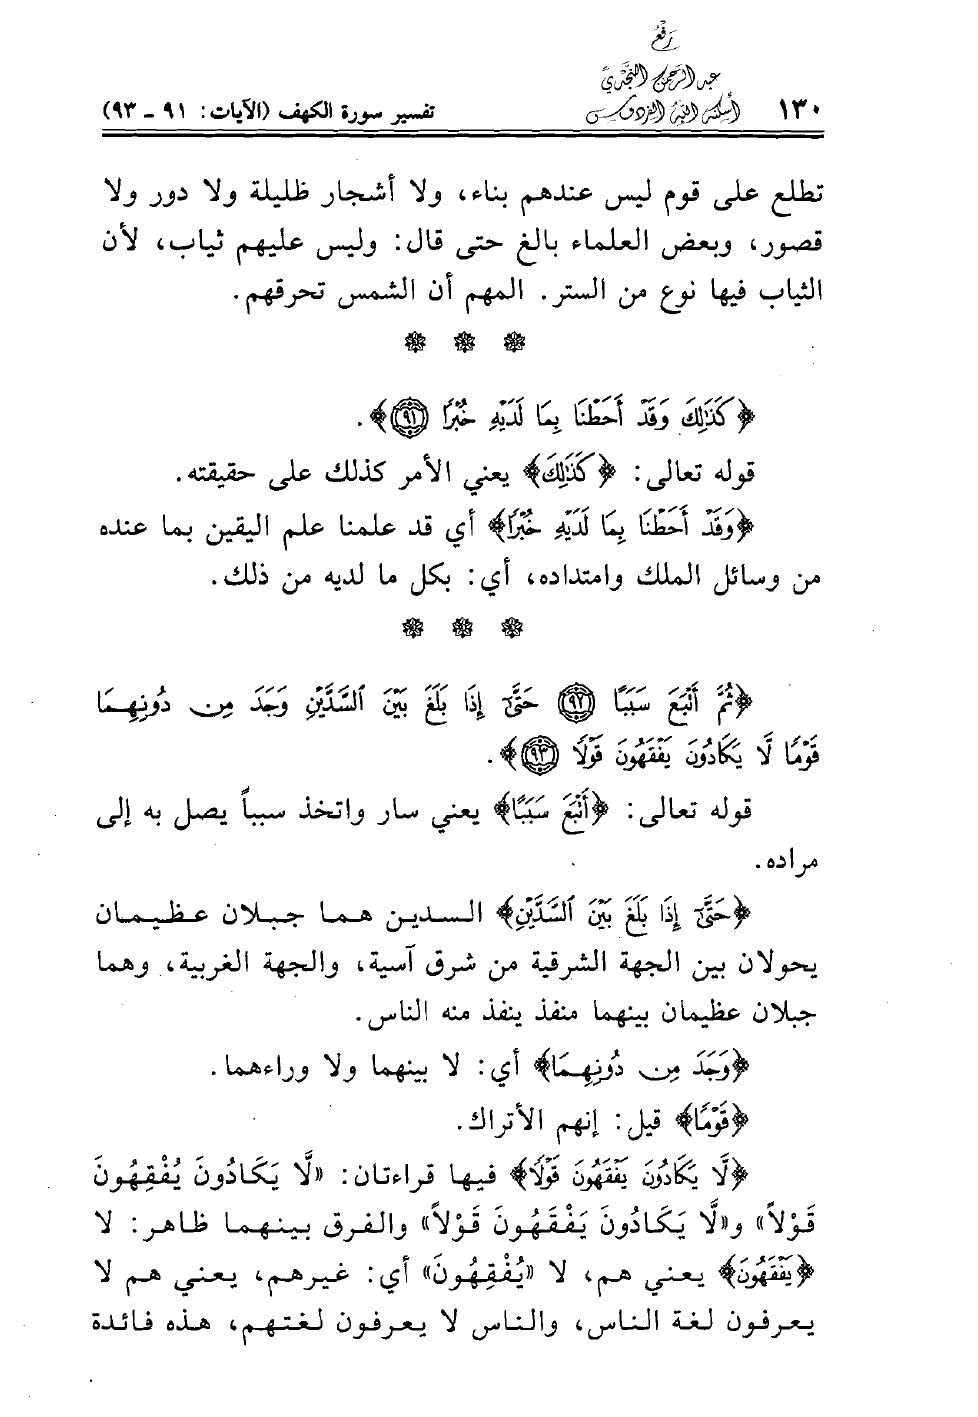 رَفْعُ
عبد الرحمن النجدي
أسكنه الله الفردوس
١٣٠ تفسير سورة الكهف (الآيات: ٩١ - ٩٣)
تطلع على قوم ليس عندهم بناء، ولا أشجار ظليلة ولا دور ولا
قصور، وبعض العلماء بالغ حتى قال: وليس عليهم ثياب، لأن
الثياب فيها نوع من الستر. المهم أن الشمس تحرقهم.
﴿كَذَٰلِكَ وَقَدْ أَحَطْنَا بِمَا لَدَيْهِ خُبْرًا ٩١﴾.
قوله تعالى: ﴿كَذَٰلِكَ﴾ يعني الأمر كذلك على حقيقته.
﴿وَقَدْ أَحَطْنَا بِمَا لَدَيْهِ خُبْرًا﴾ أي قد علمنا علم اليقين بما عنده
من وسائل الملك وامتداده، أي: بكل ما لديه من ذلك.
﴿ثُمَّ أَتْبَعَ سَبَبًا ٩٢ حَتَّىٰٓ إِذَا بَلَغَ بَيْنَ ٱلسَّدَّيْنِ وَجَدَ مِن دُونِهِمَا
قَوْمًا لَّا يَكَادُونَ يَفْقَهُونَ قَوْلًا ٩٣﴾.
قوله تعالى: ﴿أَتْبَعَ سَبَبًا﴾ يعني سار واتخذ سبباً يصل به إلى
مراده.
﴿حَتَّىٰٓ إِذَا بَلَغَ بَيْنَ ٱلسَّدَّيْنِ﴾ السدين هما جبلان عظيمان
يحولان بين الجهة الشرقية من شرق آسية، والجهة الغربية، وهما
جبلان عظيمان بينهما منفذ ينفذ منه الناس.
﴿وَجَدَ مِن دُونِهِمَا﴾ أي: لا بينهما ولا وراءهما.
﴿قَوْمًا﴾ قيل: إنهم الأتراك.
﴿لَّا يَكَادُونَ يَفْقَهُونَ قَوْلًا﴾ فيها قراءتان: «لَّا يَكَادُونَ يُفْقِهُونَ
قَوْلاً» و«لَّا يَكَادُونَ يَفْقَهُونَ قَوْلاً» والفرق بينهما ظاهر: لا
﴿يَفْقَهُونَ﴾ يعني هم، لا «يُفْقِهُونَ» أي: غيرهم، يعني هم لا
يعرفون لغة الناس، والناس لا يعرفون لغتهم، هذه فائدة